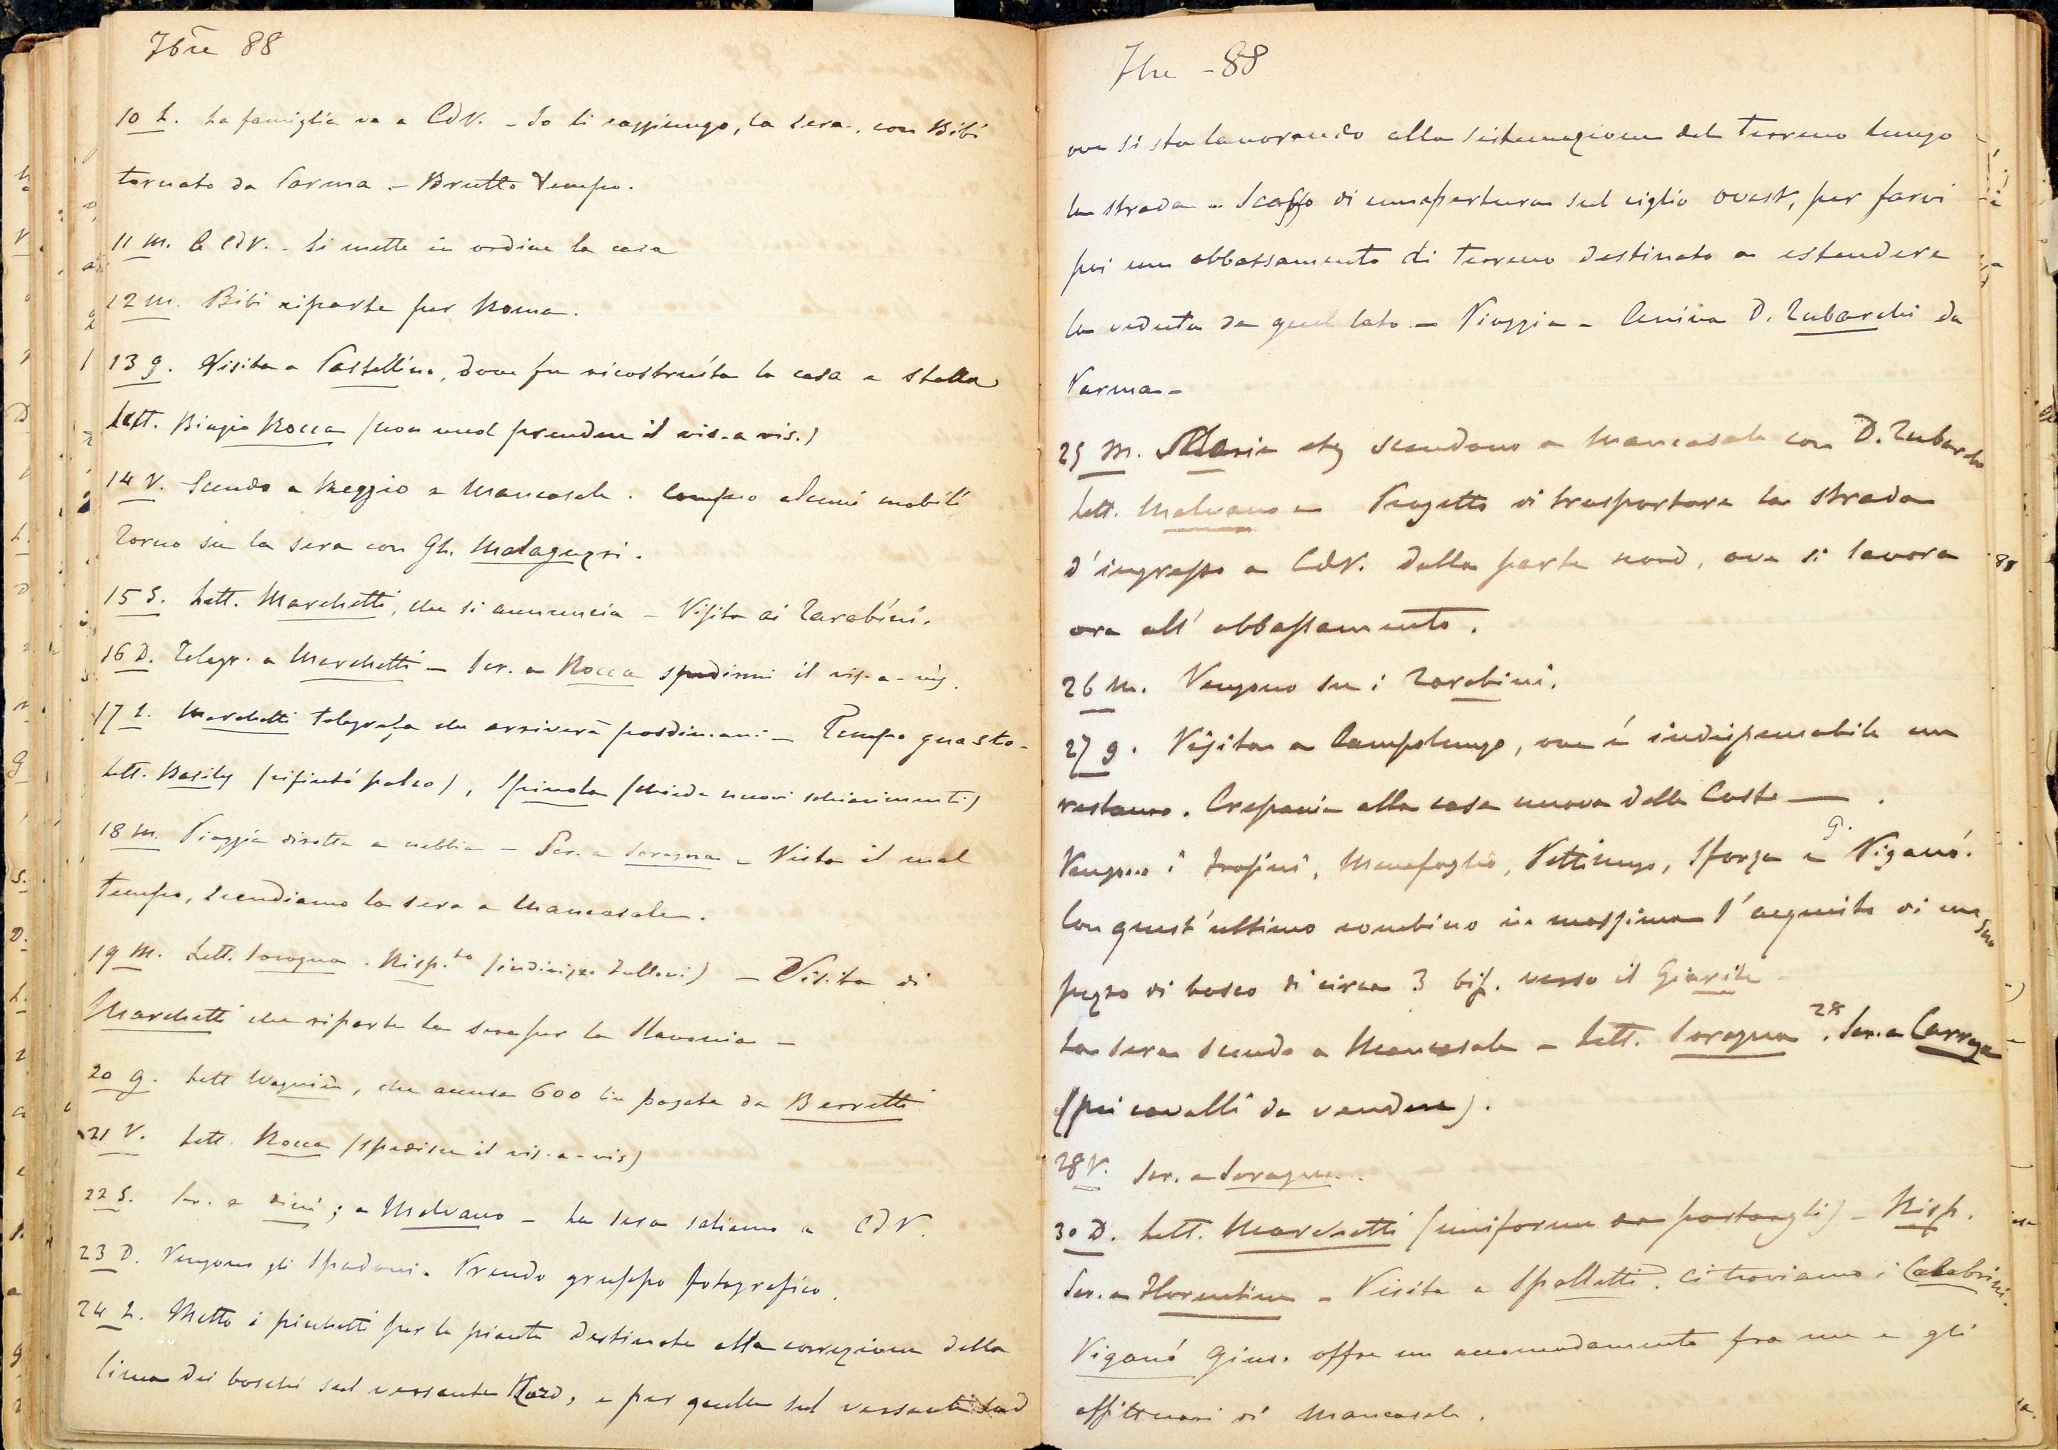 7bre 88
10 L. La famiglia va a CdV. - Io li raggiungo, la sera, con Bibi
tornato da Parma - Brutto tempo.
11 M. a CdV. - Si mette in ordine la casa
12 M. Bibi riparte per Roma.
13 G. Visita a Castellina, dove fu ricostruita la casa e stalla
Lett. Biagio Rocca (non vuol prendere il vis-a-vis.)
14 V. Scendo a Reggio e Mancasale. Compro alcuni mobili
Torno su la sera con Gh. Malaguzzi.
15 S. Lett. Marchetti, che si annuncia - Visita ai Tarabini.
16 D. Telegr. a Marchetti - Scr. a Rocca spedirmi il vis-a-vis.
17 L. Marchetti telegrafa che arriverà posdimani - Tempo guasto -
Lett. Basily (rifiutò palco), Spinola (chiede nuovi schiarimenti)
18 M. Pioggia dirotta e nebbia - Scr. a Soragna - Visto il mal
tempo, scendiamo la sera a Mancasale.
19 M. Lett. Soragna. Risp.to (indirizzo) - Visita di
Marchetti che riparte la sera per la Slavonia -
20 G. Lett. che accusa 600 lire pagate da Berretti
21 V. Lett. Rocca (spedisce il vis-a-vis)
22 S. Scr. a ; a Malvano - La sera saliamo a CdV.
23 D. Vengono gli Spadoni. Prendo gruppo fotografico.
24 L. Metto i picchetti per le piante destinate alla correzione della
linea dei boschi sul versante Nord, e per quelle sul versante sud
7bre - 88
ove si sta lavorando alla sistemazione del terreno lungo
la strada - Scasso di un'apertura sul ciglio ovest, per farvi
poi un abbassamento di terreno destinato a estendere
la veduta da quel lato - Pioggia - Arriva D. Zubarchi da
Parma -
25 M. Maria etc scendono a Mancasale con D. Zubarchi
Lett. Malvano - Progetto di trasportare la strada
d'ingresso a CdV. dalla parte nord, ove si lavora
ora all'abbassamento.
26 M. Vengono su i Tarabini.
27 G. Visita a Campolungo, ove è indispensabile un
restauro. Crepaccia alla casa nuova delle Coste — .
Vengono i Menafoglio, Pettinengo, Sforza e G. Viganò.
Con quest'ultimo combino in massima l'acquisto di un suo
pezzo di bosco di circa 3 bif. verso il Giarile -
La sera scendo a Mancasale - Lett. Soragna 28. Scr. a Carrega
(pei cavalli da vendere).
28 V. Scr. a Soragna.
30 D. Lett. Marchetti (uniforme) - Risp.
Scr. a Florentin - Visita a Spalletti. Ci troviamo i Calabrini.
Viganò Gius. offre un accomodamento fra me e gli
affittuari di Mancasale.